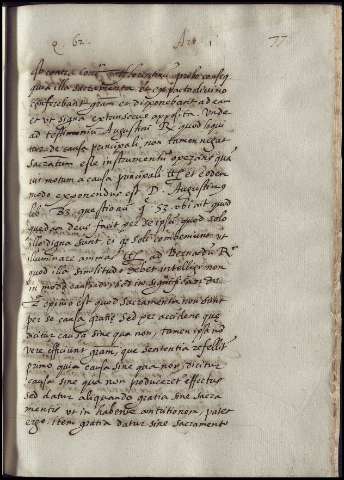 q 62. Ar. 1 77
quia illa sacramenta ex pacto divino
conferebant gram et disponebant ad eam
et ut signa extrinsecus apposita. Unde
ad testimoniu Augustini R. quod loqui
tur de causa principali, non tamen negat
sacramtum esse instrumentu operans qua
tus motum a causa principali et eodem
modo exponendus est D. Augustinus
lib. 83. questionu q 53. ubi ait quod
quedam deus facit per se ipsu quod solo
illo digna sunt, et ei soli conveniunt ut
illuminare animas ad Bernardu R.
quod illa similitudo debet intelligi non
in modo causandi sed in significando
opinio est quod sacramenta non sunt
per se causa gratie sed per accidens que
dicitur causa sine qua non, tamen
vere efficiunt gram, que sententia refellit
primo quia causa sine qua non dicitur
causa sine qua non produceret effectus
sed datur aliquando gratia sine sacra
mentis ut in habente attritionem, patet
ergo. item gratia datur sine sacramento